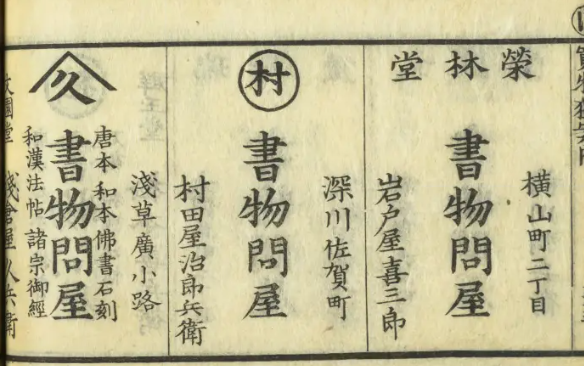 榮林堂
横山町二丁目
書物問屋
岩戸屋喜三郎
村
深川佐賀町
書物問屋
村田屋治郎兵衛
久
淺草廣小路
唐本和本佛書石刻
書物問屋
和漢法帖諸宗御經
淺倉屋久兵衛